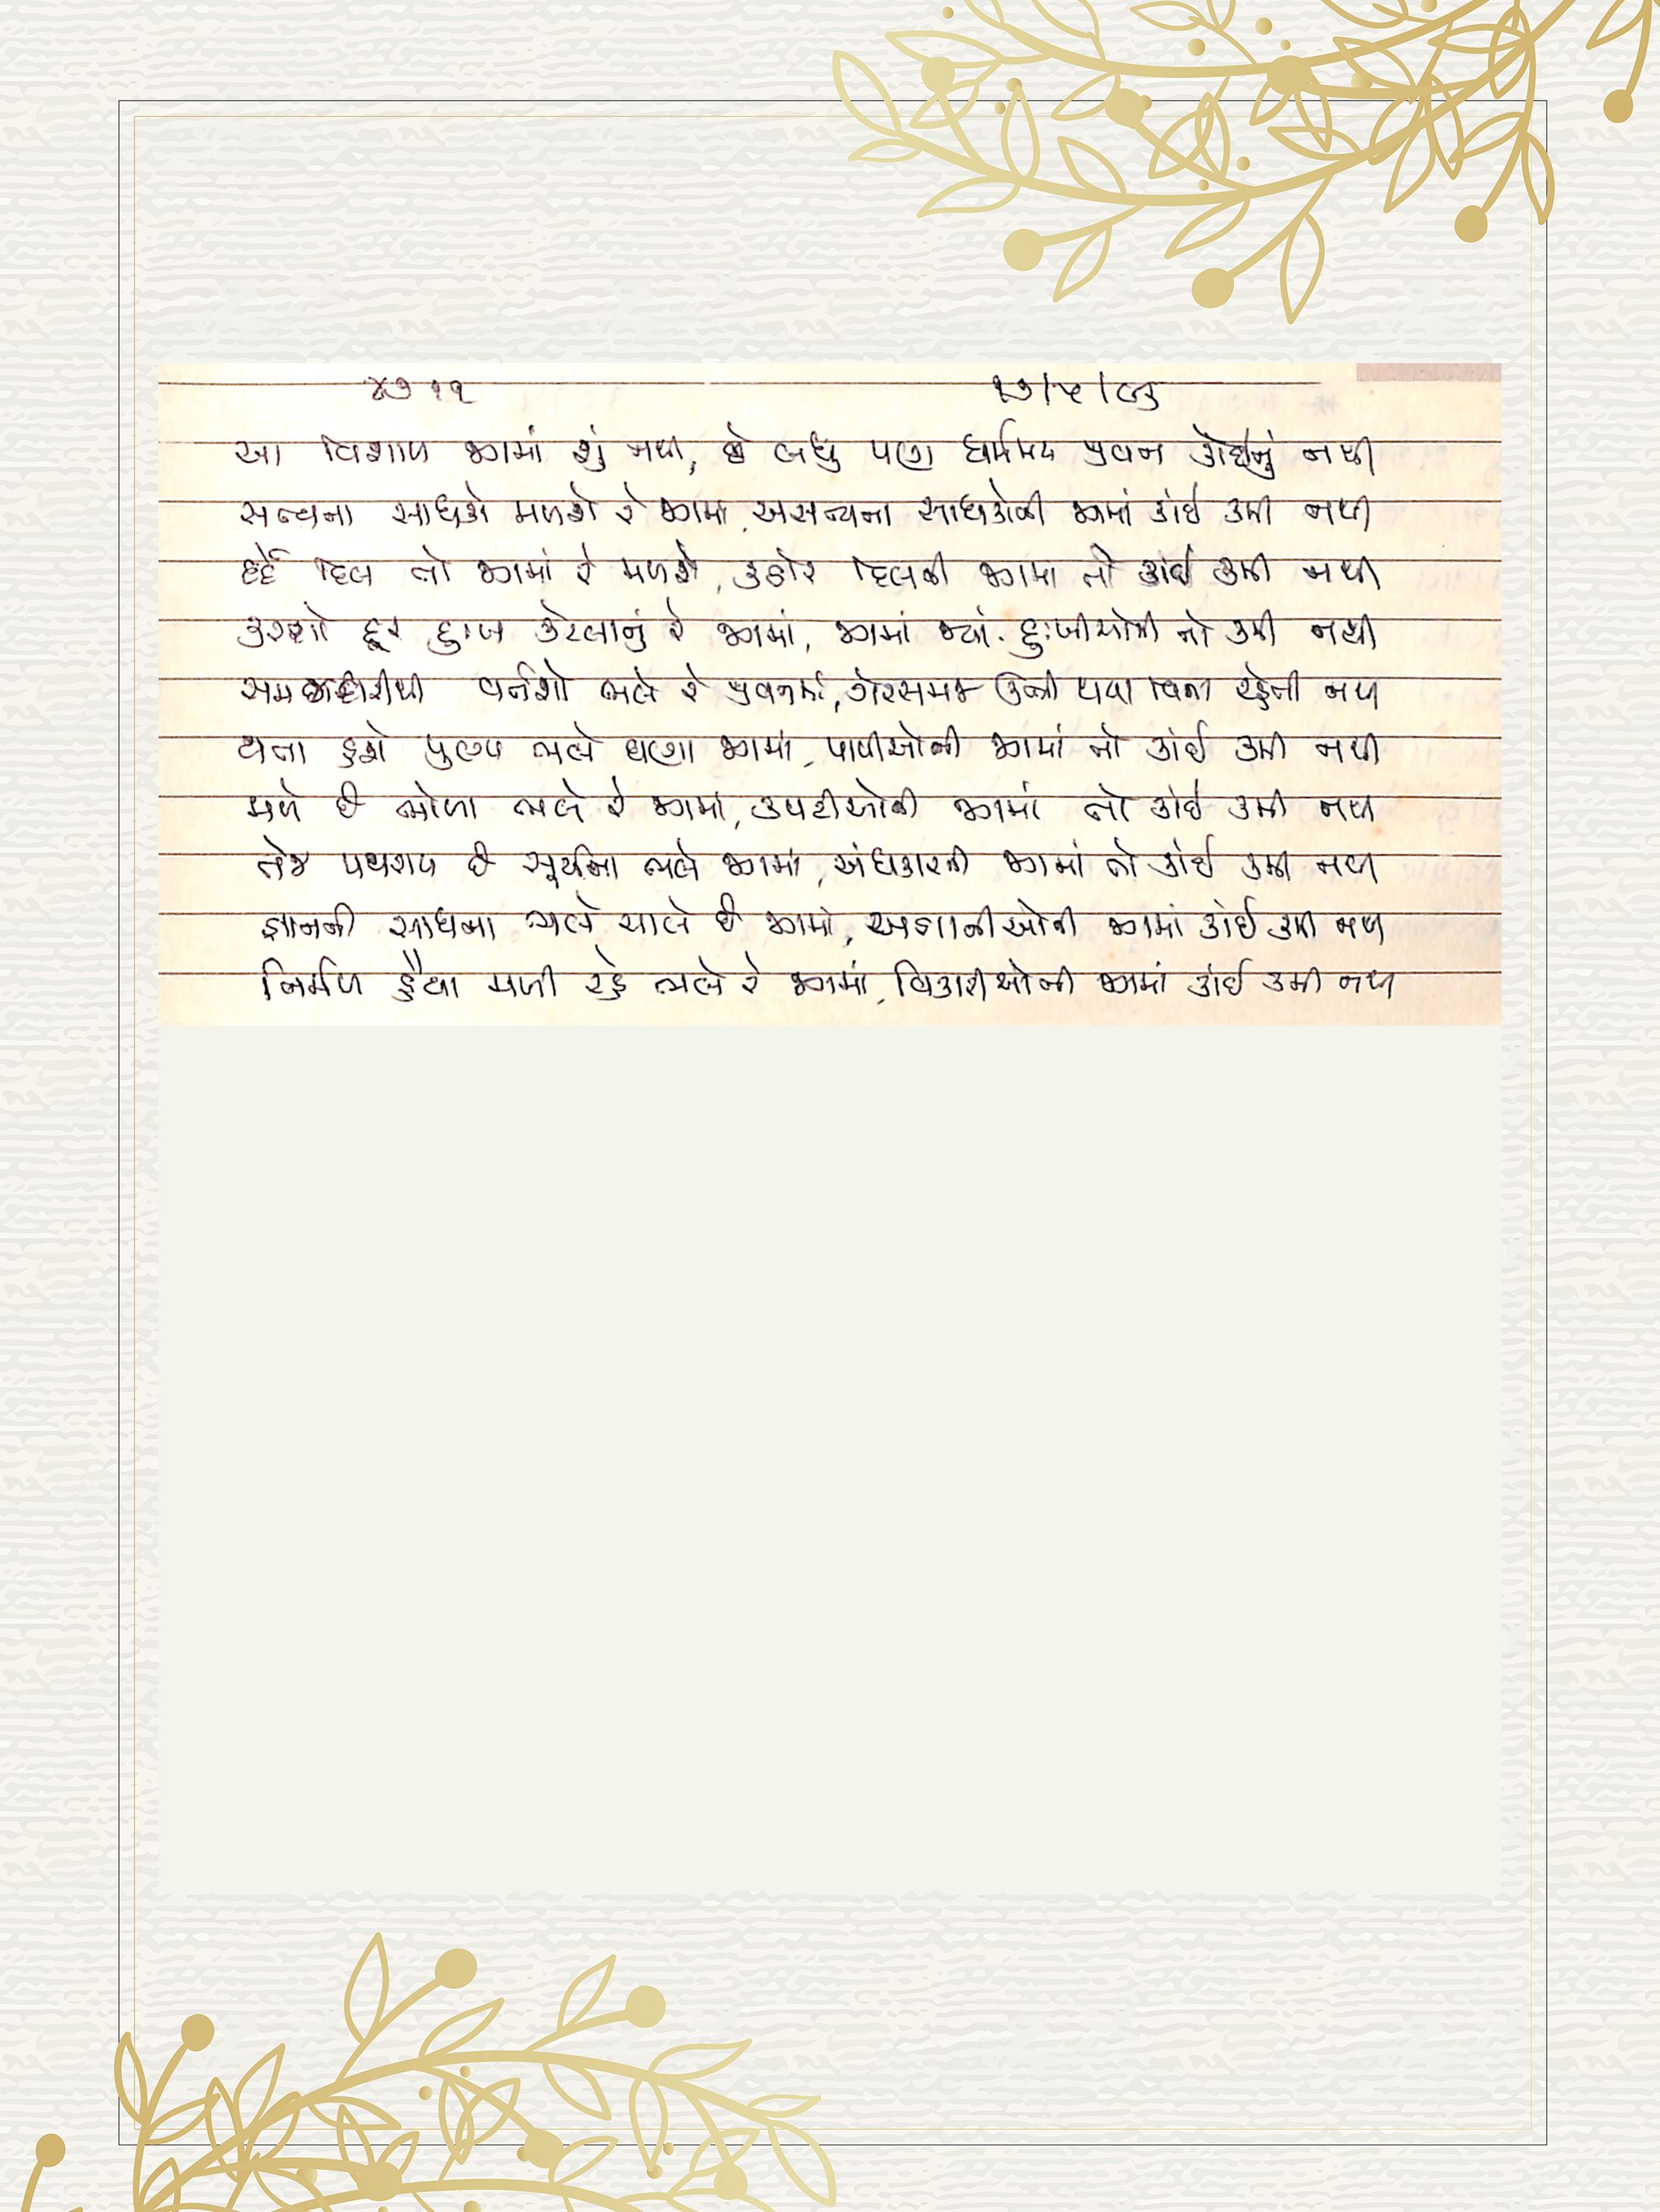 ૪૭૧૧ ૧૭/૫/૯૩
આ વિશાળ જગમાં શું નથી, છે બધુ પણ ધર્મમય જીવન કોઈનું નથી
સત્યના સાધકો મળશે રે જગમાં, અસત્યના સાધકોની જગમાં કાંઈ કમી નથી
દર્દે દિલ તો જગમાં રે મળશે, કઠોર દિલની જગમાં તો કાંઈ કમી નથી
કરશો દૂર દુઃખ કેટલાનું રે જગમાં, જગમાં જ્યાં દુઃખીઓની તો કમી નથી
સમજદારીથી વર્તશો ભલે રે જીવનમાં, ગેરસમજ ઊભી થયા વિના રહેતી નથી
થાતા હશે પુણ્ય ભલે ઘણા જગમાં, પાપીઓની જગમાં તો કાંઈ કમી નથી
મળે છે ભોળા ભલે રે જગમાં, કપટીઓની જગમાં તો કાંઈ કમી નથી
તેજ પથરાય છે સૂર્યના ભલે જગમાં, અંધકારની જગમાં તો કાંઈ કમી નથી
જ્ઞાનની સાધના ભલે ચાલે છે જગમાં, અજ્ઞાનીઓની જગમાં કાંઈ કમી નથી
નિર્મળ હૈયા મળી રહે ભલે રે જગમાં, વિકારીઓની જગમાં કાંઈ કમી નથી